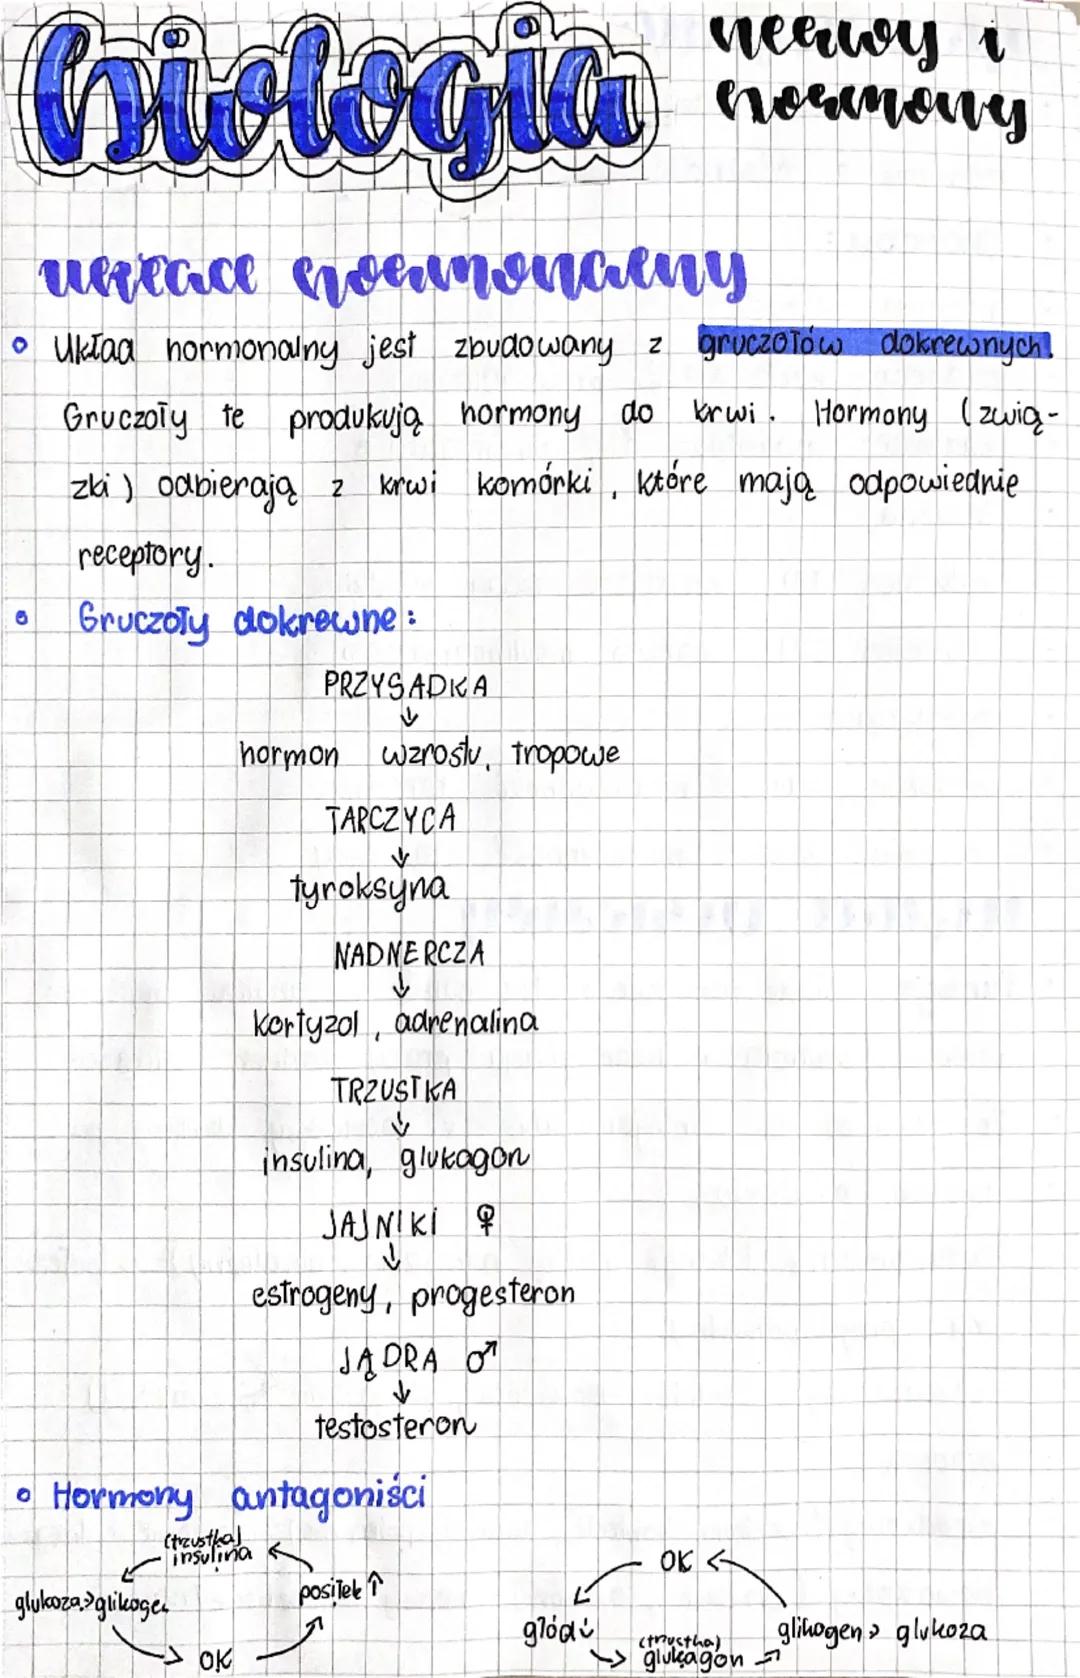 biologia
nerwy i
hormony
układ hormonalny
Układ hormonalny jest zbudowany z gruczołów dokrewnych.
Gruczoły te produkują hormony do krwi. Hormony (zwią-
zki) odbierają z krwi komórki, które mają odpowiednie
receptory.
Gruczoły dokrewne:
PRZYSADKA
↓
hormon wzrostu, tropowe
TARCZYCA
↓
tyroksyna
NADNERCZA
↓
kortyzol, adrenalina
TRZUSTKA
↓
insulina, glukagon
JAJNIKI ♀
↓
estrogeny, progesteron
JĄDRA ♂
↓
testosteron
Hormony antagoniści
(trzustka)
insulina
glukoza->glikogen
posiłek ↑
OK
OK
głód ↓
(trzustka)
glukagon
glikogen > glukoza